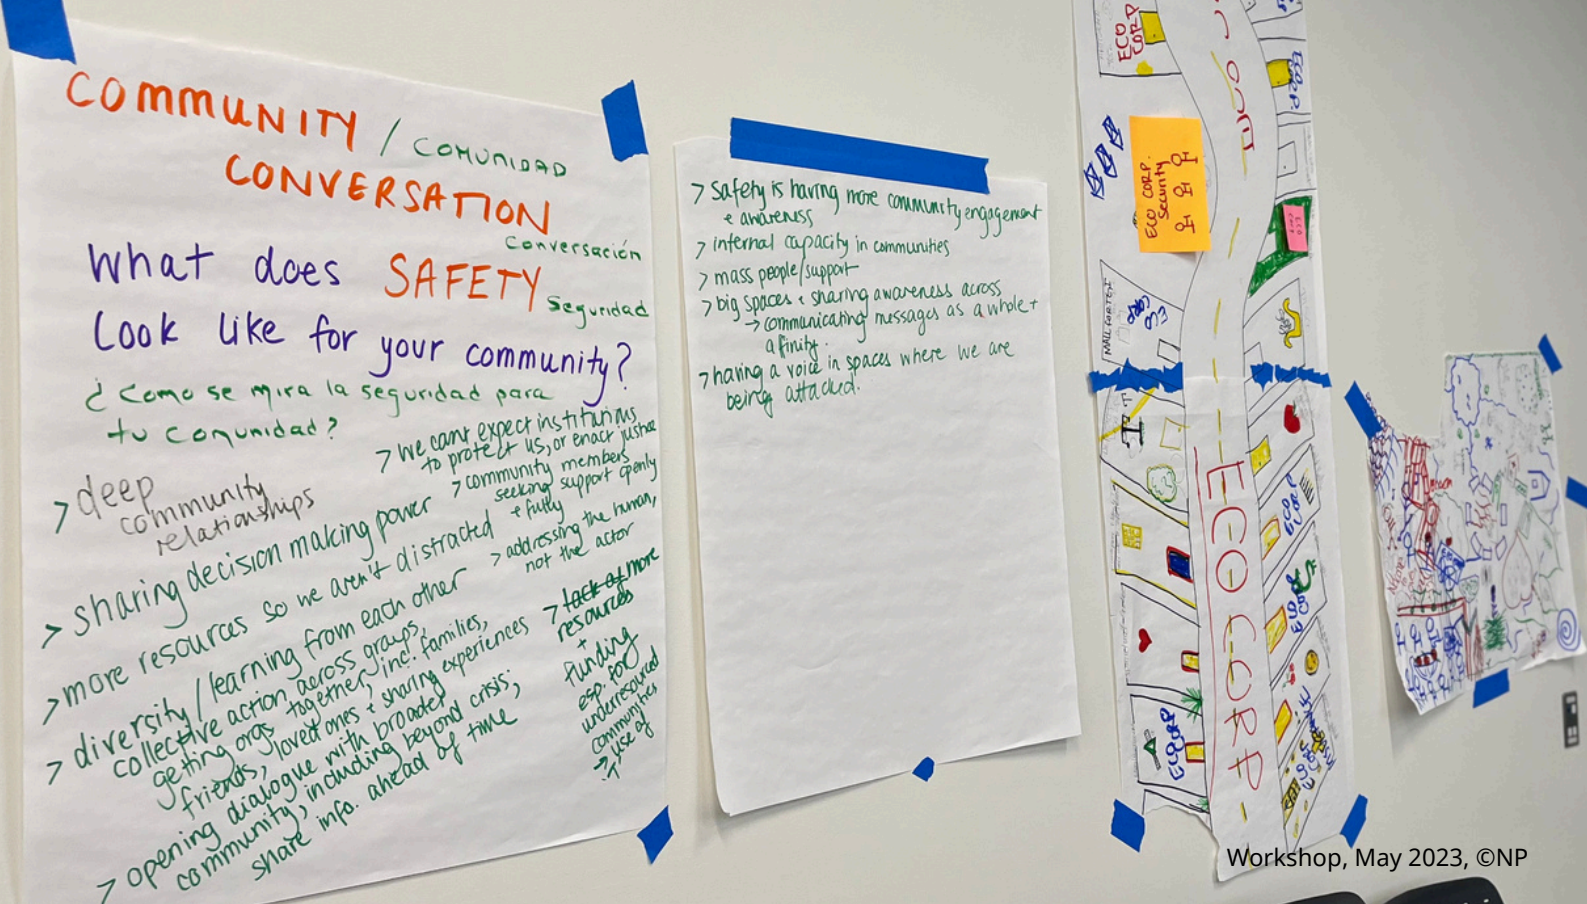 COMMUNITY / COMUNIDAD
CONVERSATION
Conversación
What does SAFETY
Seguridad
look like for your community?
¿Como se mira la seguridad para
tu comunidad?
> deep
community
relationships
> sharing decision making power
> more resources so we aren't distracted
> diversity / learning from each other
collective action across groups,
getting orgs together, inc. families,
friends, loved ones + sharing experiences
> opening dialogue with broader
community, including beyond crisis;
share info. ahead of time
> we cant expect institutions
to protect us, or enact justice
> community members
seeking support openly
+ fully
> addressing the human,
not the actor
> lack of more
resources
+
funding
esp. for
underresourced
communities
→ use of
> Safety is having more community engagement
+ awareness
> internal capacity in communities
> mass people/support
> big spaces + sharing awareness across
→ communicating messages as a whole +
afinity.
> having a voice in spaces where we are
being attacked.
ECO
CORP
ECO
CORP.
ECO CORP.
Security
ECO
CORP
ECO CORP
ECO
CORP
ECO
CORP
ECO CORP
Workshop, May 2023, ©NP